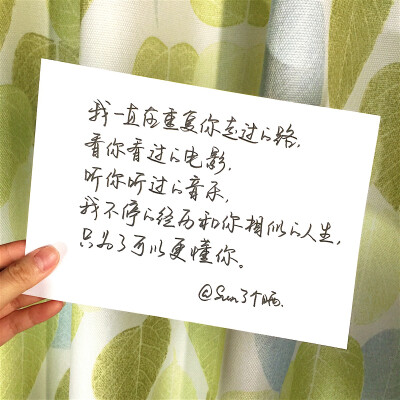 我一直在重复你走过的路，
看你看过的电影，
听你听过的音乐，
我不停的经历和你相似的人生，
只为了可以更懂你。
@Sun了个晒.